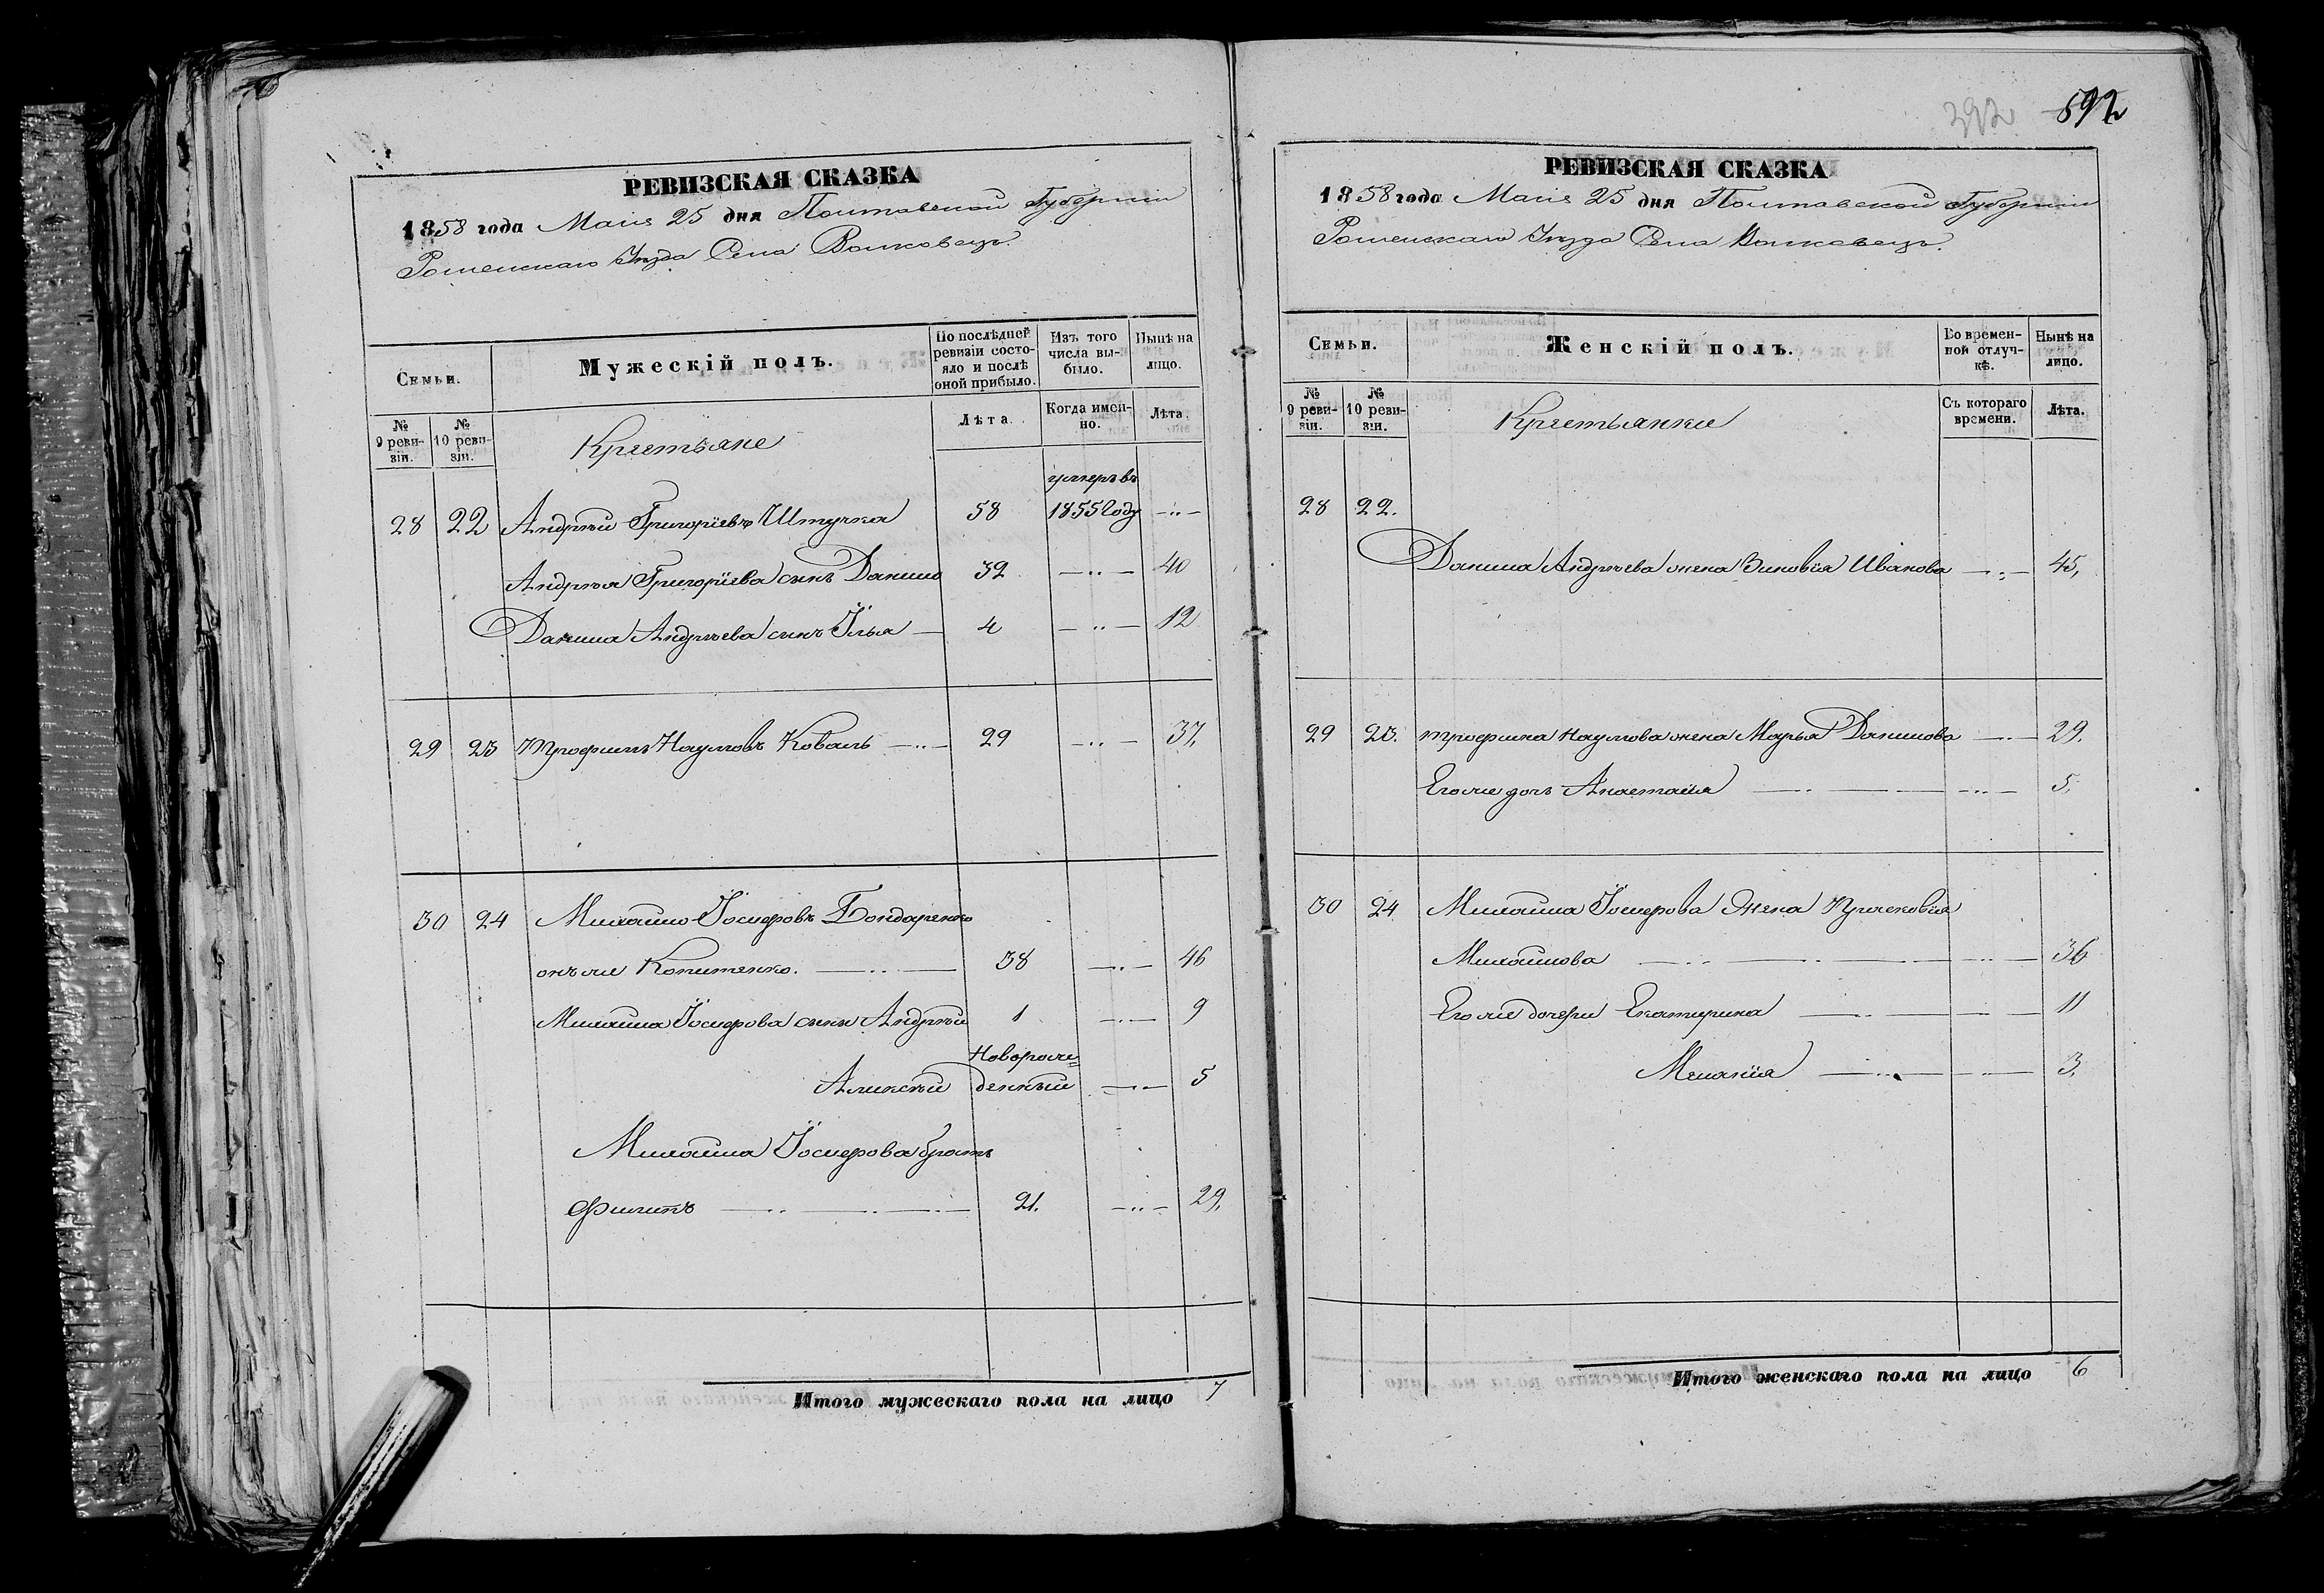 РЕВИЗСКАЯ СКАЗКА
1858 года Маія 25 дня Полтавской Губерніи
Роменскаго Уѣзда Села Волковецъ.
Семьи.
Мужескій полъ.
По послѣдней ревизіи состояло и послѣ оной прибыло.
Изъ того числа выбыло.
Нынѣ на лицо.
№ 9 ревизіи.
№ 10 ревизіи.
Крестьяне
Лѣта.
Когда именно.
Лѣта.
умеръ въ
28 22 Андрѣй Григоріевъ Штучка 58 1855 году —„—
Андрѣя Григоріева сынъ Данило 32 —„— 40
Данила Андрѣева сынъ Илья — 4 —„— 12
29 23 Трофимъ Наумовъ Коваль —„— 29 —„— 37.
30 24 Михайло Іосифовъ Бондаренко
онъ же Копитенко. —„— 38 —„— 46
Михайла Іосифова сынъ Андрѣй 1 —„— 9
Новорож=
Алексѣй денный —„— 5
Михайла Іосифова братъ
Филипъ —„—„— 21. —„— 29.
Итого мужескаго пола на лицо 7
592
392
РЕВИЗСКАЯ СКАЗКА
1858 года Маія 25 дня Полтавской Губерніи
Роменскаго Уѣзда Села Волковецъ.
Семьи.
Женскій полъ.
Во временной отлучкѣ.
Нынѣ на лицо.
№ 9 ревизіи.
№ 10 ревизіи.
Крестьянки
Съ котораго времени.
Лѣта.
28 22.
Данила Андрѣева жена Зиновія Иванова —„— 45,
29 23. Трофима Наумова жена Марья Данилова —„— 29.
Его же дочь Анастасія —„— —„— 5.
30 24 Михайла Іосифова Жена Прасковія
Михайлова —„—„— —„— 36
Его же дочери Екатерина —„— —„— 11
Меланія —„— —„— 3.
Итого женскаго пола на лицо 6